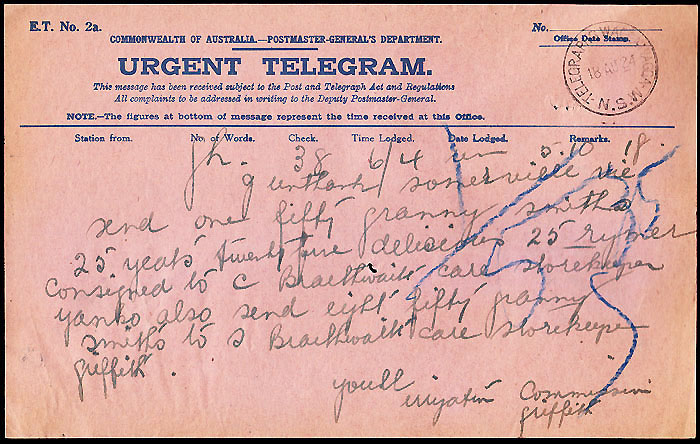 E.T. No. 2a.
No.
COMMONWEALTH OF AUSTRALIA.—POSTMASTER-GENERAL'S DEPARTMENT.
Office Date Stamp.
URGENT TELEGRAM.
This message has been received subject to the Post and Telegraph Act and Regulations
All complaints to be addressed in writing to the Deputy Postmaster-General.
TELEGRAPH WAGGA WAGGA N.S.W.
18 24
NOTE.—The figures at bottom of message represent the time received at this Office.
Station from. No. of Words. Check. Time Lodged. Date Lodged. Remarks.
38 6/4 5.10 18
somerville vic
send one fifty granny smiths
25 yeats twentyfive delicious 25 rymer
consigned to C Braithwaite care storekeeper
yanko also send eight fifty granny
smiths to S Braithwaite care storekeeper
griffith
youll
Commission
griffith